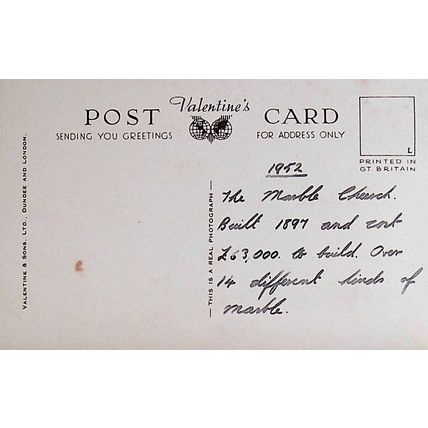 Valentine's
POST CARD
SENDING YOU GREETINGS
FOR ADDRESS ONLY
L
PRINTED IN
GT BRITAIN
VALENTINE & SONS, LTD. DUNDEE AND LONDON.
THIS IS A REAL PHOTOGRAPH
1952
The Marble Church.
Built 1897 and cost
£63,000. to build. Over
14 different kinds of
marble.